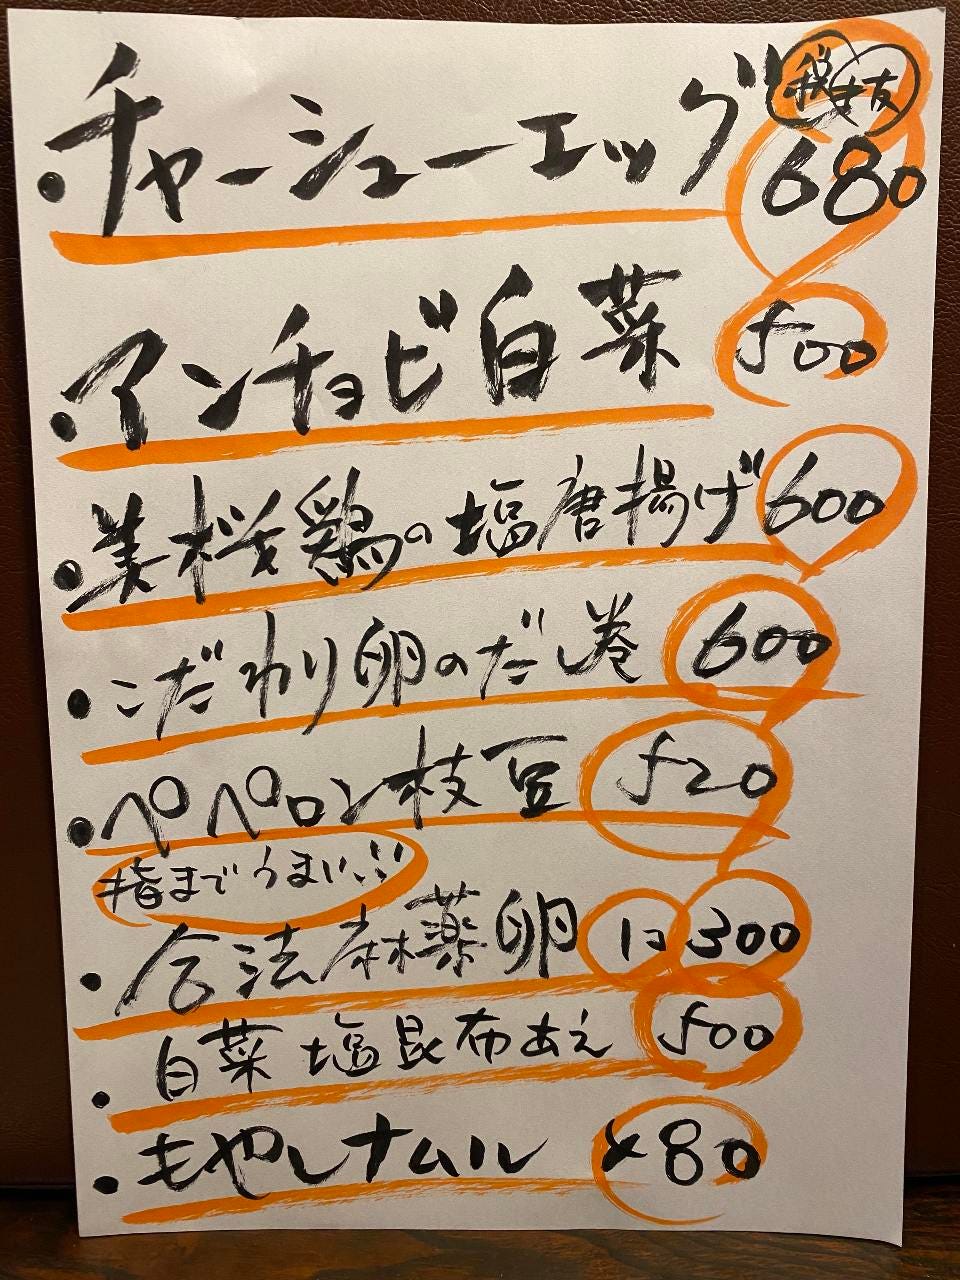 税抜
・チャーシューエッグ 680
・アンチョビ白菜 500
・美桜鶏の塩唐揚げ 600
・こだわり卵のだし巻 600
・ペペロン枝豆 520
指までうまい!!
・合法麻薬卵 1コ 300
・白菜塩昆布あえ 500
・もやしナムル 80